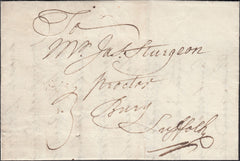 To
Mr Jas. Sturgeon
Proctor
Bury
3
Suffolk